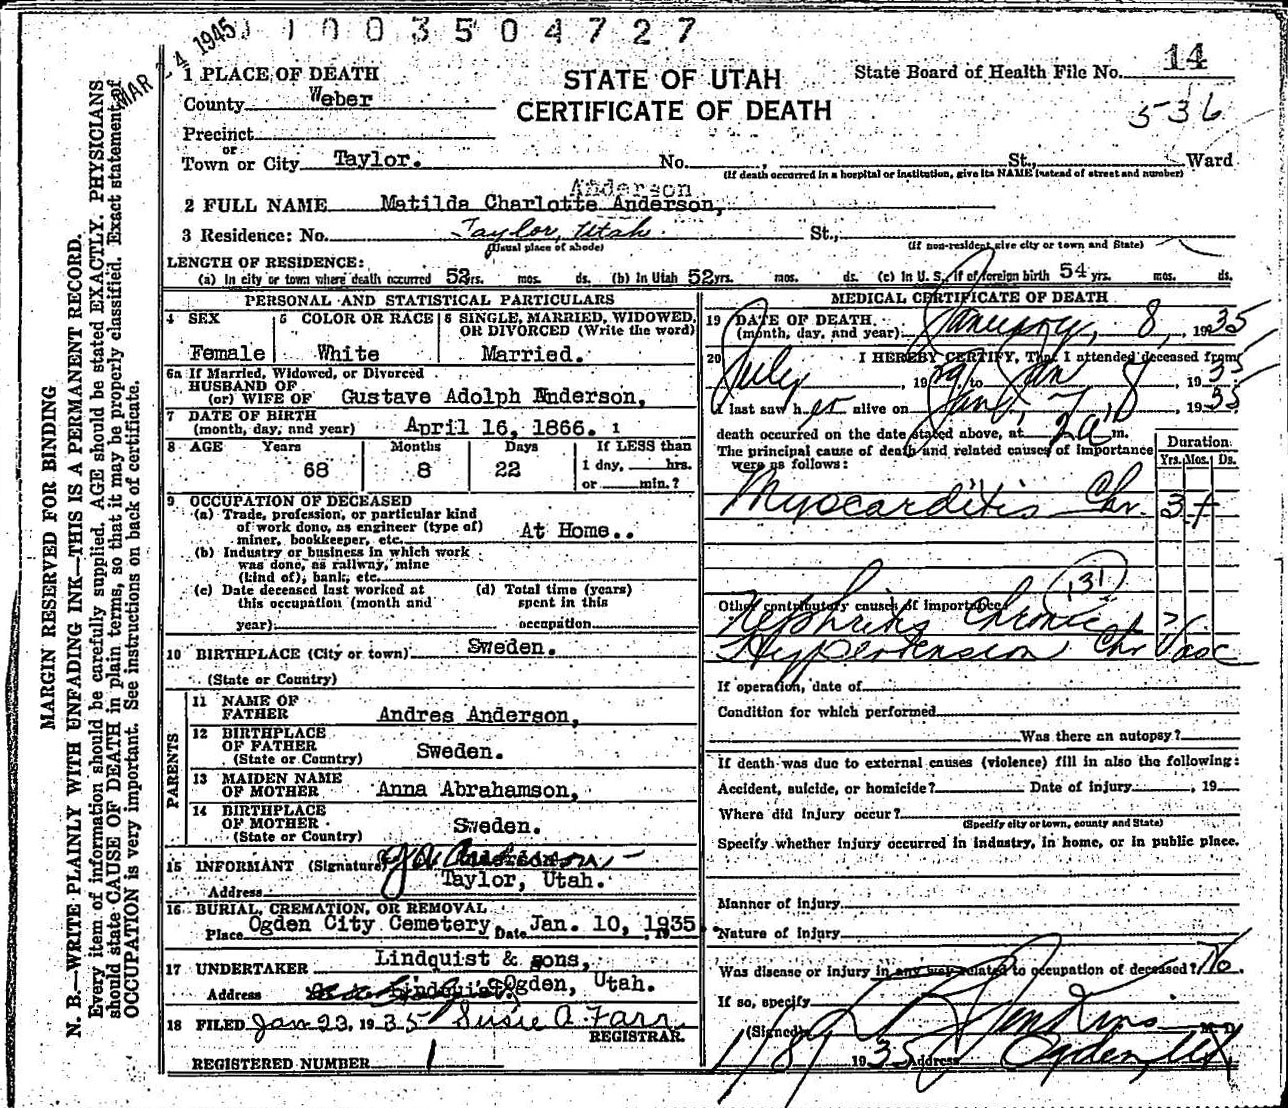 MAR 4 1945
1 0 0 3 5 0 4 7 2 7
STATE OF UTAH
CERTIFICATE OF DEATH
State Board of Health File No. 14
536
1 PLACE OF DEATH
County Weber
Precinct
or
Town or City Taylor. No. , St., Ward
(If death occurred in a hospital or institution, give its NAME instead of street and number)
Anderson
2 FULL NAME Matilda Charlotte Anderson,
3 Residence: No. Taylor, Utah. St.,
(Usual place of abode) (If non-resident give city or town and State)
LENGTH OF RESIDENCE:
(a) In city or town where death occurred 52 yrs. mos. ds. (b) In Utah 52 yrs. mos. ds. (c) In U. S. if of foreign birth 54 yrs. mos. ds.
PERSONAL AND STATISTICAL PARTICULARS
4 SEX
Female
5 COLOR OR RACE
White
6 SINGLE, MARRIED, WIDOWED, OR DIVORCED (Write the word)
Married.
6a If Married, Widowed, or Divorced
HUSBAND OF
(or) WIFE OF Gustave Adolph Anderson,
7 DATE OF BIRTH
(month, day, and year) April 16, 1866. 1
8 AGE Years Months Days If LESS than
68 8 22 1 day, hrs.
or min.?
9 OCCUPATION OF DECEASED
(a) Trade, profession, or particular kind
of work done, as engineer (type of)
miner, bookkeeper, etc. At Home..
(b) Industry or business in which work
was done, as railway, mine
(kind of), bank, etc.
(c) Date deceased last worked at
this occupation (month and
year)
(d) Total time (years)
spent in this
occupation
10 BIRTHPLACE (City or town) Sweden.
(State or Country)
PARENTS
11 NAME OF
FATHER Andres Anderson,
12 BIRTHPLACE
OF FATHER Sweden.
(State or Country)
13 MAIDEN NAME
OF MOTHER Anna Abrahamson,
14 BIRTHPLACE
OF MOTHER Sweden.
(State or Country)
15 INFORMANT (Signature) Anderson,
Address Taylor, Utah.
16 BURIAL, CREMATION, OR REMOVAL
Place Ogden City Cemetery Date Jan. 10, 1935
17 UNDERTAKER Lindquist & sons,
Address Ogden, Utah.
18 FILED Jan 23, 1935 Susie A. Farr
REGISTRAR.
REGISTERED NUMBER 1
MEDICAL CERTIFICATE OF DEATH
19 DATE OF DEATH
(month, day, and year) January, 8, 1935
20 I HEREBY CERTIFY, That I attended deceased from
July , 1929, to Jan 8 , 1935
I last saw her alive on Jan , 1935
death occurred on the date stated above, at 2 a m.
The principal cause of death and related causes of importance
were as follows:
Duration
Yrs. Mos. Ds.
Myocarditis Chr. 3 +
131
Other contributory causes of importance
Nephritis Chronic
Hypertension Chr Vasc
If operation, date of
Condition for which performed
Was there an autopsy?
If death was due to external causes (violence) fill in also the following:
Accident, suicide, or homicide? Date of injury , 19
Where did injury occur?
(Specify city or town, county and State)
Specify whether injury occurred in industry, in home, or in public place.
Manner of injury
Nature of injury
Was disease or injury in any way related to occupation of deceased? No.
If so, specify
(Signed) Jenkins M. D.
1935 Address Ogden, Ut
MARGIN RESERVED FOR BINDING
N. B.—WRITE PLAINLY WITH UNFADING INK—THIS IS A PERMANENT RECORD.
Every item of information should be carefully supplied. AGE should be stated EXACTLY. PHYSICIANS
should state CAUSE OF DEATH in plain terms, so that it may be properly classified. Exact statement of
OCCUPATION is very important. See instructions on back of certificate.